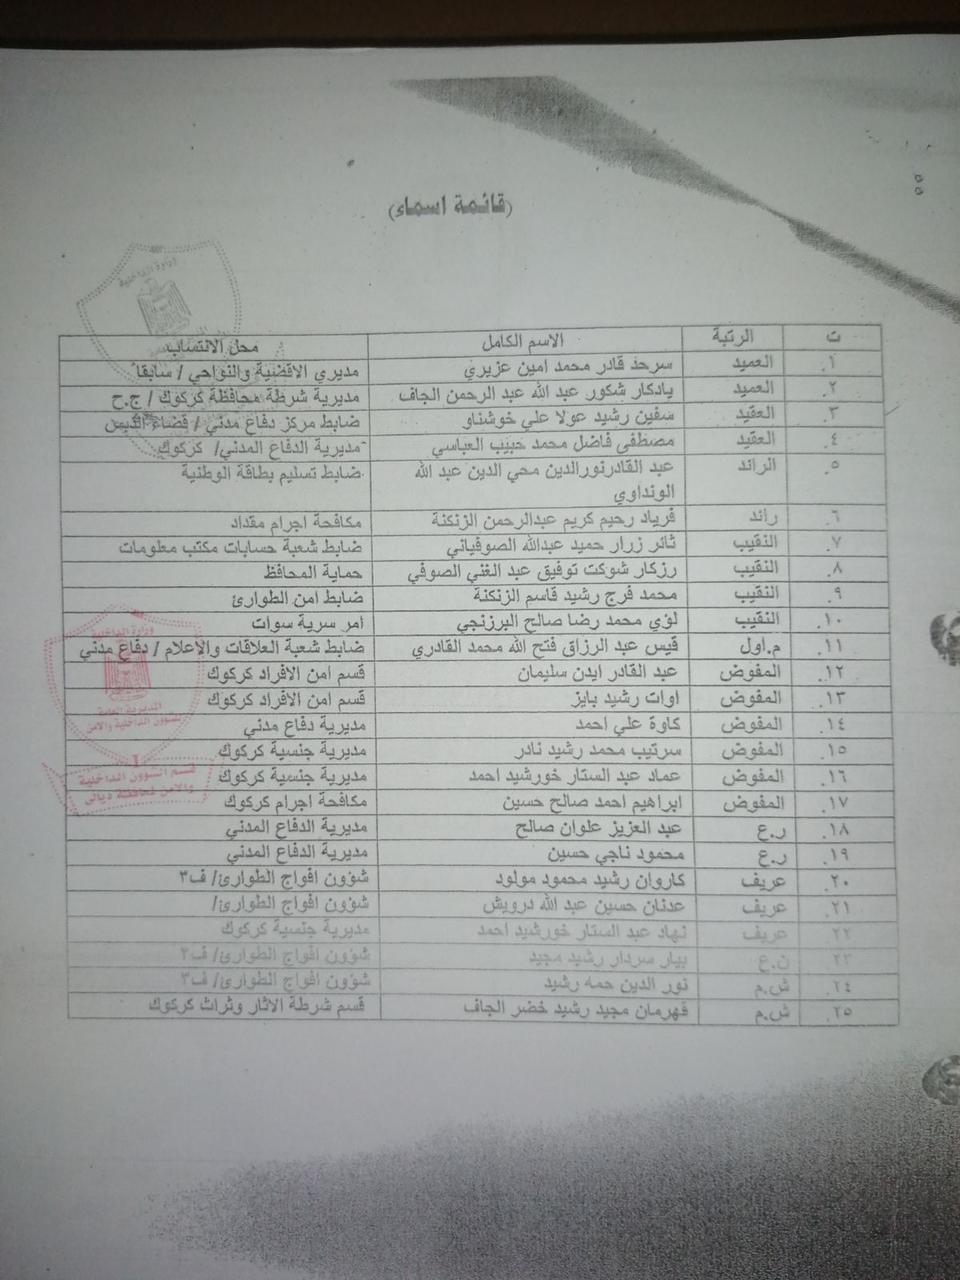 (قائمة اسماء)
وزارة الداخلية
ت الرتبة الاسم الكامل محل الانتساب
١. العميد سرحد قادر محمد امين عزيري مديري الاقضية والنواحي / سابقاً
٢. العميد يادكار شكور عبد الله عبد الرحمن الجاف مديرية شرطة محافظة كركوك / ج.ح
٣. العقيد سفين رشيد عولا علي خوشناو ضابط مركز دفاع مدني / قضاء الدبس
٤. العقيد مصطفى فاضل محمد حبيب العباسي مديرية الدفاع المدني/ كركوك
٥. الرائد عبد القادرنورالدين محي الدين عبد الله ضابط تسليم بطاقة الوطنية
الونداوي
٦. رائد فرياد رحيم كريم عبدالرحمن الزنكنة مكافحة اجرام مقداد
٧. النقيب ثائر زرار حميد عبدالله الصوفياني ضابط شعبة حسابات مكتب معلومات
٨. النقيب رزكار شوكت توفيق عبد الغني الصوفي حماية المحافظ
٩. النقيب محمد فرج رشيد قاسم الزنكنة ضابط امن الطوارئ
١٠. النقيب لؤي محمد رضا صالح البرزنجي امر سرية سوات
١١. م.اول قيس عبد الرزاق فتح الله محمد القادري ضابط شعبة العلاقات والاعلام / دفاع مدني
١٢. المفوض عبد القادر ايدن سليمان قسم امن الافراد كركوك
١٣. المفوض اوات رشيد بايز قسم امن الافراد كركوك
١٤. المفوض كاوة علي احمد مديرية دفاع مدني
١٥. المفوض سرتيب محمد رشيد نادر مديرية جنسية كركوك
١٦. المفوض عماد عبد الستار خورشيد احمد مديرية جنسية كركوك
١٧. المفوض ابراهيم احمد صالح حسين مكافحة اجرام كركوك
١٨. ر.ع عبد العزيز علوان صالح مديرية الدفاع المدني
١٩. ر.ع محمود ناجي حسين مديرية الدفاع المدني
٢٠. عريف كاروان رشيد محمود مولود شؤون افواج الطوارئ/ ف٣
٢١. عريف عدنان حسين عبد الله درويش شؤون افواج الطوارئ/
٢٢. عريف نهاد عبد الستار خورشيد احمد مديرية جنسية كركوك
٢٣. ن.ع بيار سردار رشيد مجيد شؤون افواج الطوارئ/ ف٢
٢٤. ش.م نور الدين حمه رشيد شؤون افواج الطوارئ/ ف٣
٢٥. ش.م قهرمان مجيد رشيد خضر الجاف قسم شرطة الاثار وثراث كركوك
وزارة الداخلية
المديرية العامة
لشؤون الداخلية والامن
قسم الشؤون الداخلية
والامن لمحافظة ديالى